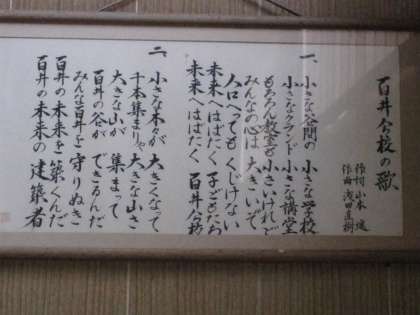 百井分校の歌
作詞 山本
作曲 浅田直樹
一、小さな谷間の 小さな学校
小さなグランド 小さな講堂
もちろん教室も 小さいけれど
みんなの心は 大きいぞ
人口へっても くじけない
未来へはばたく 子どもたち
未来へはばたく 百井分校
二、小さな木々が 大きくなって
千本集まりゃ 大きな山さ
大きな山が 集まって
百井の谷が できるんだ
みんな百井を 守りぬき
百井の未来を 築くんだ
百井の未来の 建築者